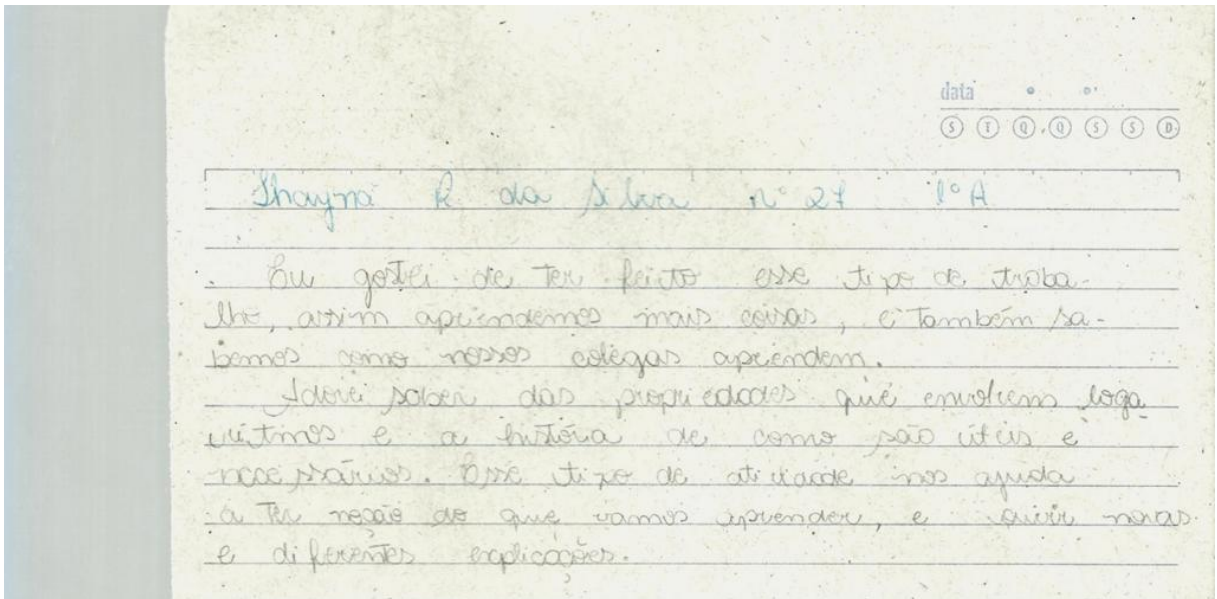 data
S T Q Q S S D
Thayná R da Silva nº 27 1º A
Eu gostei de ter feito esse tipo de traba-
lho, assim aprendemos mais coisas, e também sa-
bemos como nossos colegas aprendem.
Adorei saber das propriedades que envolvem loga
rítimos e a história de como são úteis e
necessários. Esse tipo de atividade nos ajuda
a ter noção do que vamos aprender, e ouvir novas
e diferentes explicações.